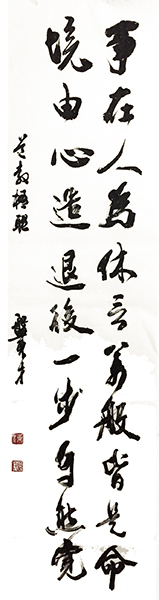 事在人為休言萬般皆是命
境由心造退後一步自然寬
道教楹聯